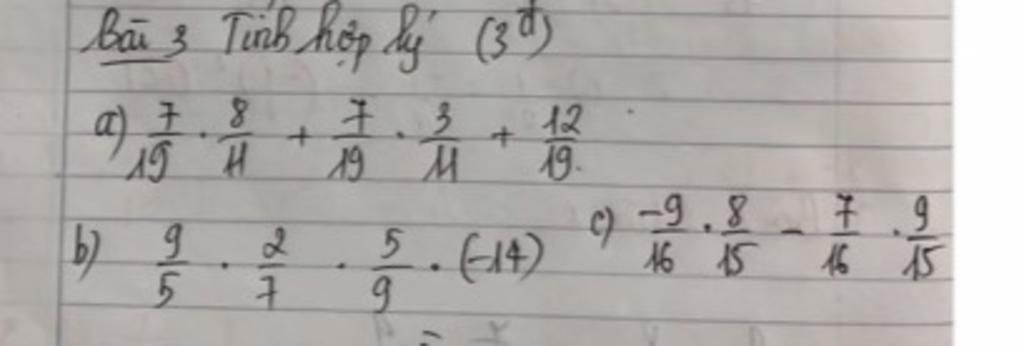 Bài 3 Tính hợp lý (3đ)
a) 7/19 . 8/11 + 7/19 . 3/11 + 12/19.
b) 9/5 . 2/7 . 5/9 . (-14)
c) -9/16 . 8/15 - 7/16 . 9/15